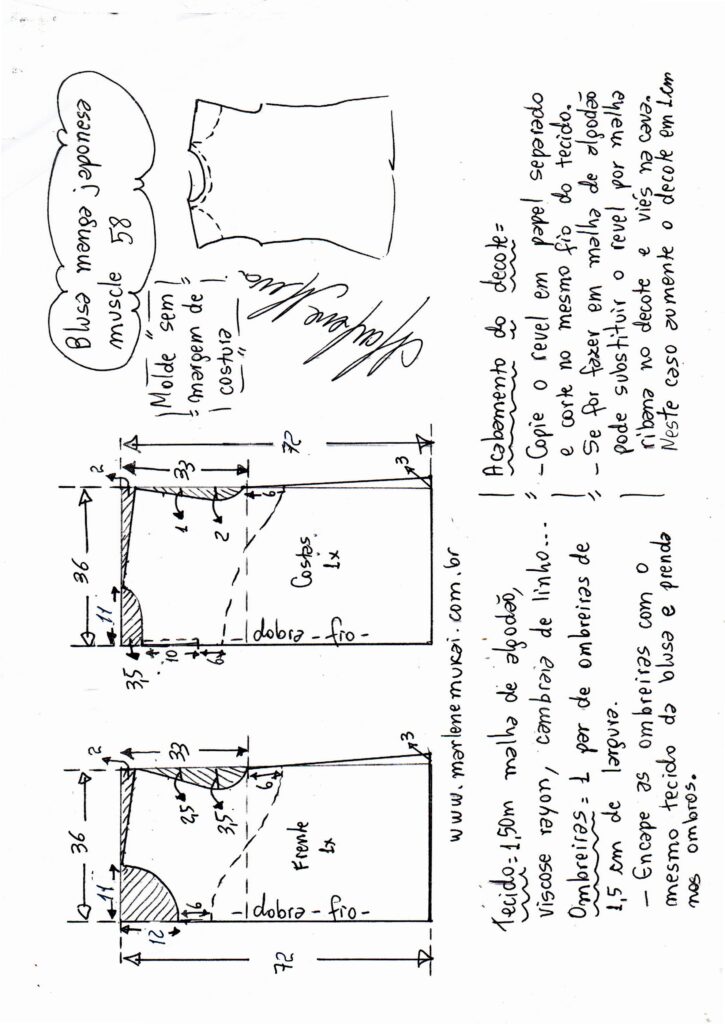 Blusa manega japonesa
muscle 58
Molde sem
margem de
costura
36
11
2
12
33
2,5
3,5
6
6
72
3
Frente
1x
- dobra - fio -
36
11
2
3,5
33
1
2
10
6
6
72
3
Costas
1x
dobra - fio -
www.marlenemukai.com.br
Tecido = 1,50m malha de algodão,
viscose rayon, cambraia de linho...
Ombreiras = 1 par de ombreiras de
1,5 cm de largura.
- Encape as ombreiras com o
mesmo tecido da blusa e prenda
nos ombros.
Acabamento do decote =
- Copie o revel em papel separado
e corte no mesmo fio do tecido.
- Se for fazer em malha de algodão
pode substituir o revel por malha
ribana no decote e viés na cava.
Neste caso aumente o decote em 1cm